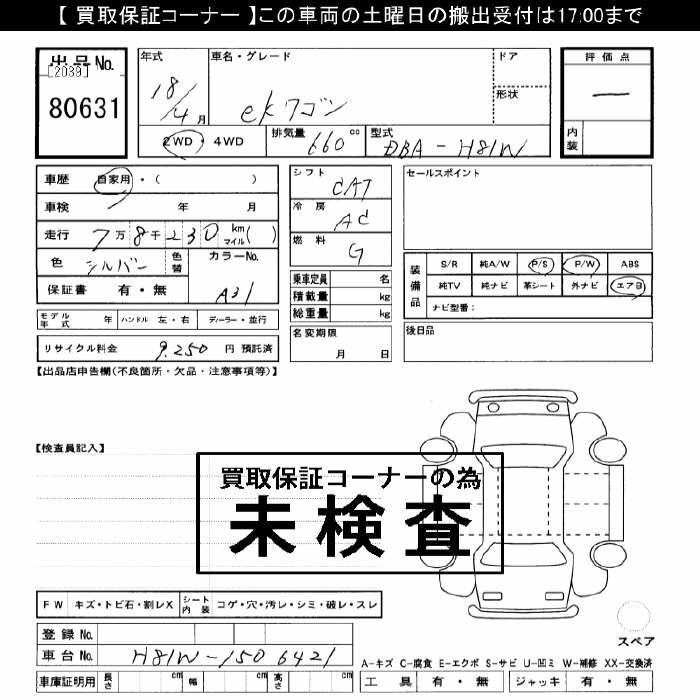 【 買取保証コーナー 】この車両の土曜日の搬出受付は17:00まで
出品No.
[2039]
80631
年式
18/4月
車名・グレード
ekワゴン
ドア
形状
2WD ・ 4WD
排気量 660 cc
型式 DBA-H81W
評価点
―
内装
車歴 自家用・( )
車検 年 月
走行 7万8千230 km マイル( )
色 シルバー
色替
カラーNo. A31
保証書 有・無
シフト CAT
冷房 AC
燃料 G
乗車定員 名
積載量 kg
総重量 kg
セールスポイント
装備品
S/R 純A/W P/S P/W ABS
純TV 純ナビ 革シート 外ナビ エアB
ナビ型番:
モデル年式 年 ハンドル 左・右 ディーラー・並行
名変期限 月 日
後日品
リサイクル料金 9.250 円 預託済
【出品店申告欄(不良箇所・欠品・注意事項等)】
【検査員記入】
買取保証コーナーの為
未検査
FW キズ・トビ石・割レX シート内装 コゲ・穴・汚レ・シミ・破レ・スレ
登録No.
車台No. H81W-1506421
スペア
A-キズ C-腐食 E-エクボ S-サビ U-凹ミ W-補修 XX-交換済
車庫証明用 長さ cm 幅 cm 高さ cm
工具 有・無 ジャッキ 有・無